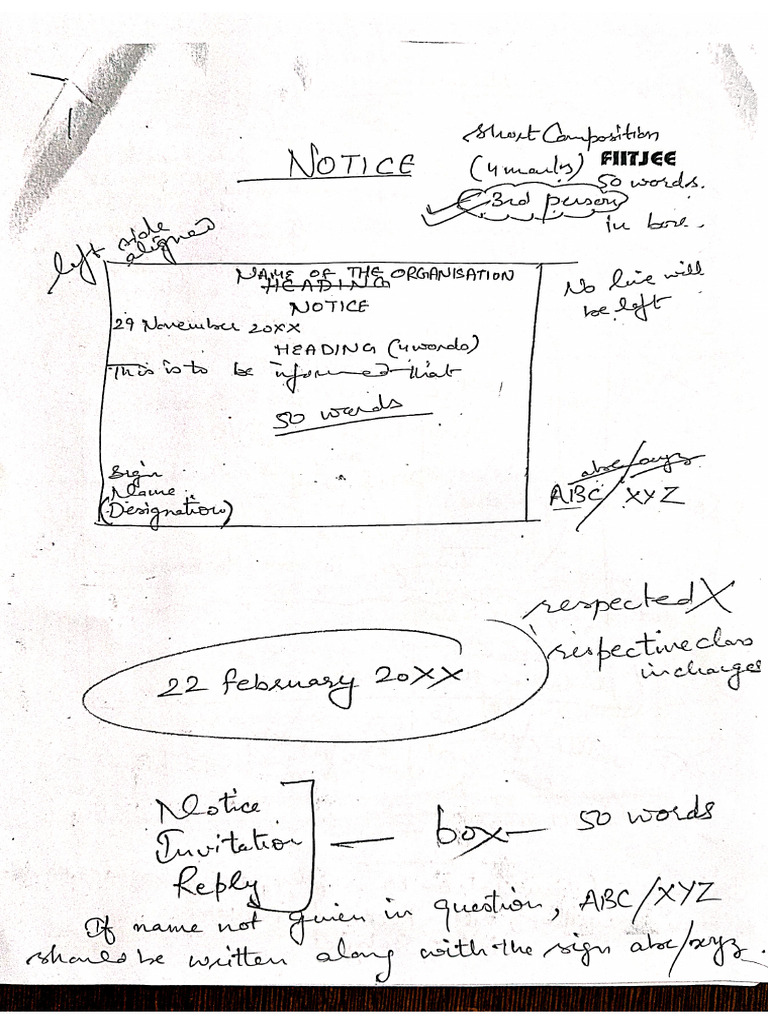 NOTICE
Short Composition
(4 marks) FIITJEE
50 words.
3rd person
in box.
left side
aligned
NAME OF THE ORGANISATION
HEADING
NOTICE
29 November 20XX
HEADING (4 words)
This is to be informed that
50 words
Sign
Name
(Designation)
No line will
be left
abc/xyz
ABC/XYZ
respected X
respective class
incharges
22 february 20XX
Notice
Invitation
Reply
box
50 words
If name not given in question, ABC/XYZ
should be written along with the sign abc/xyz.